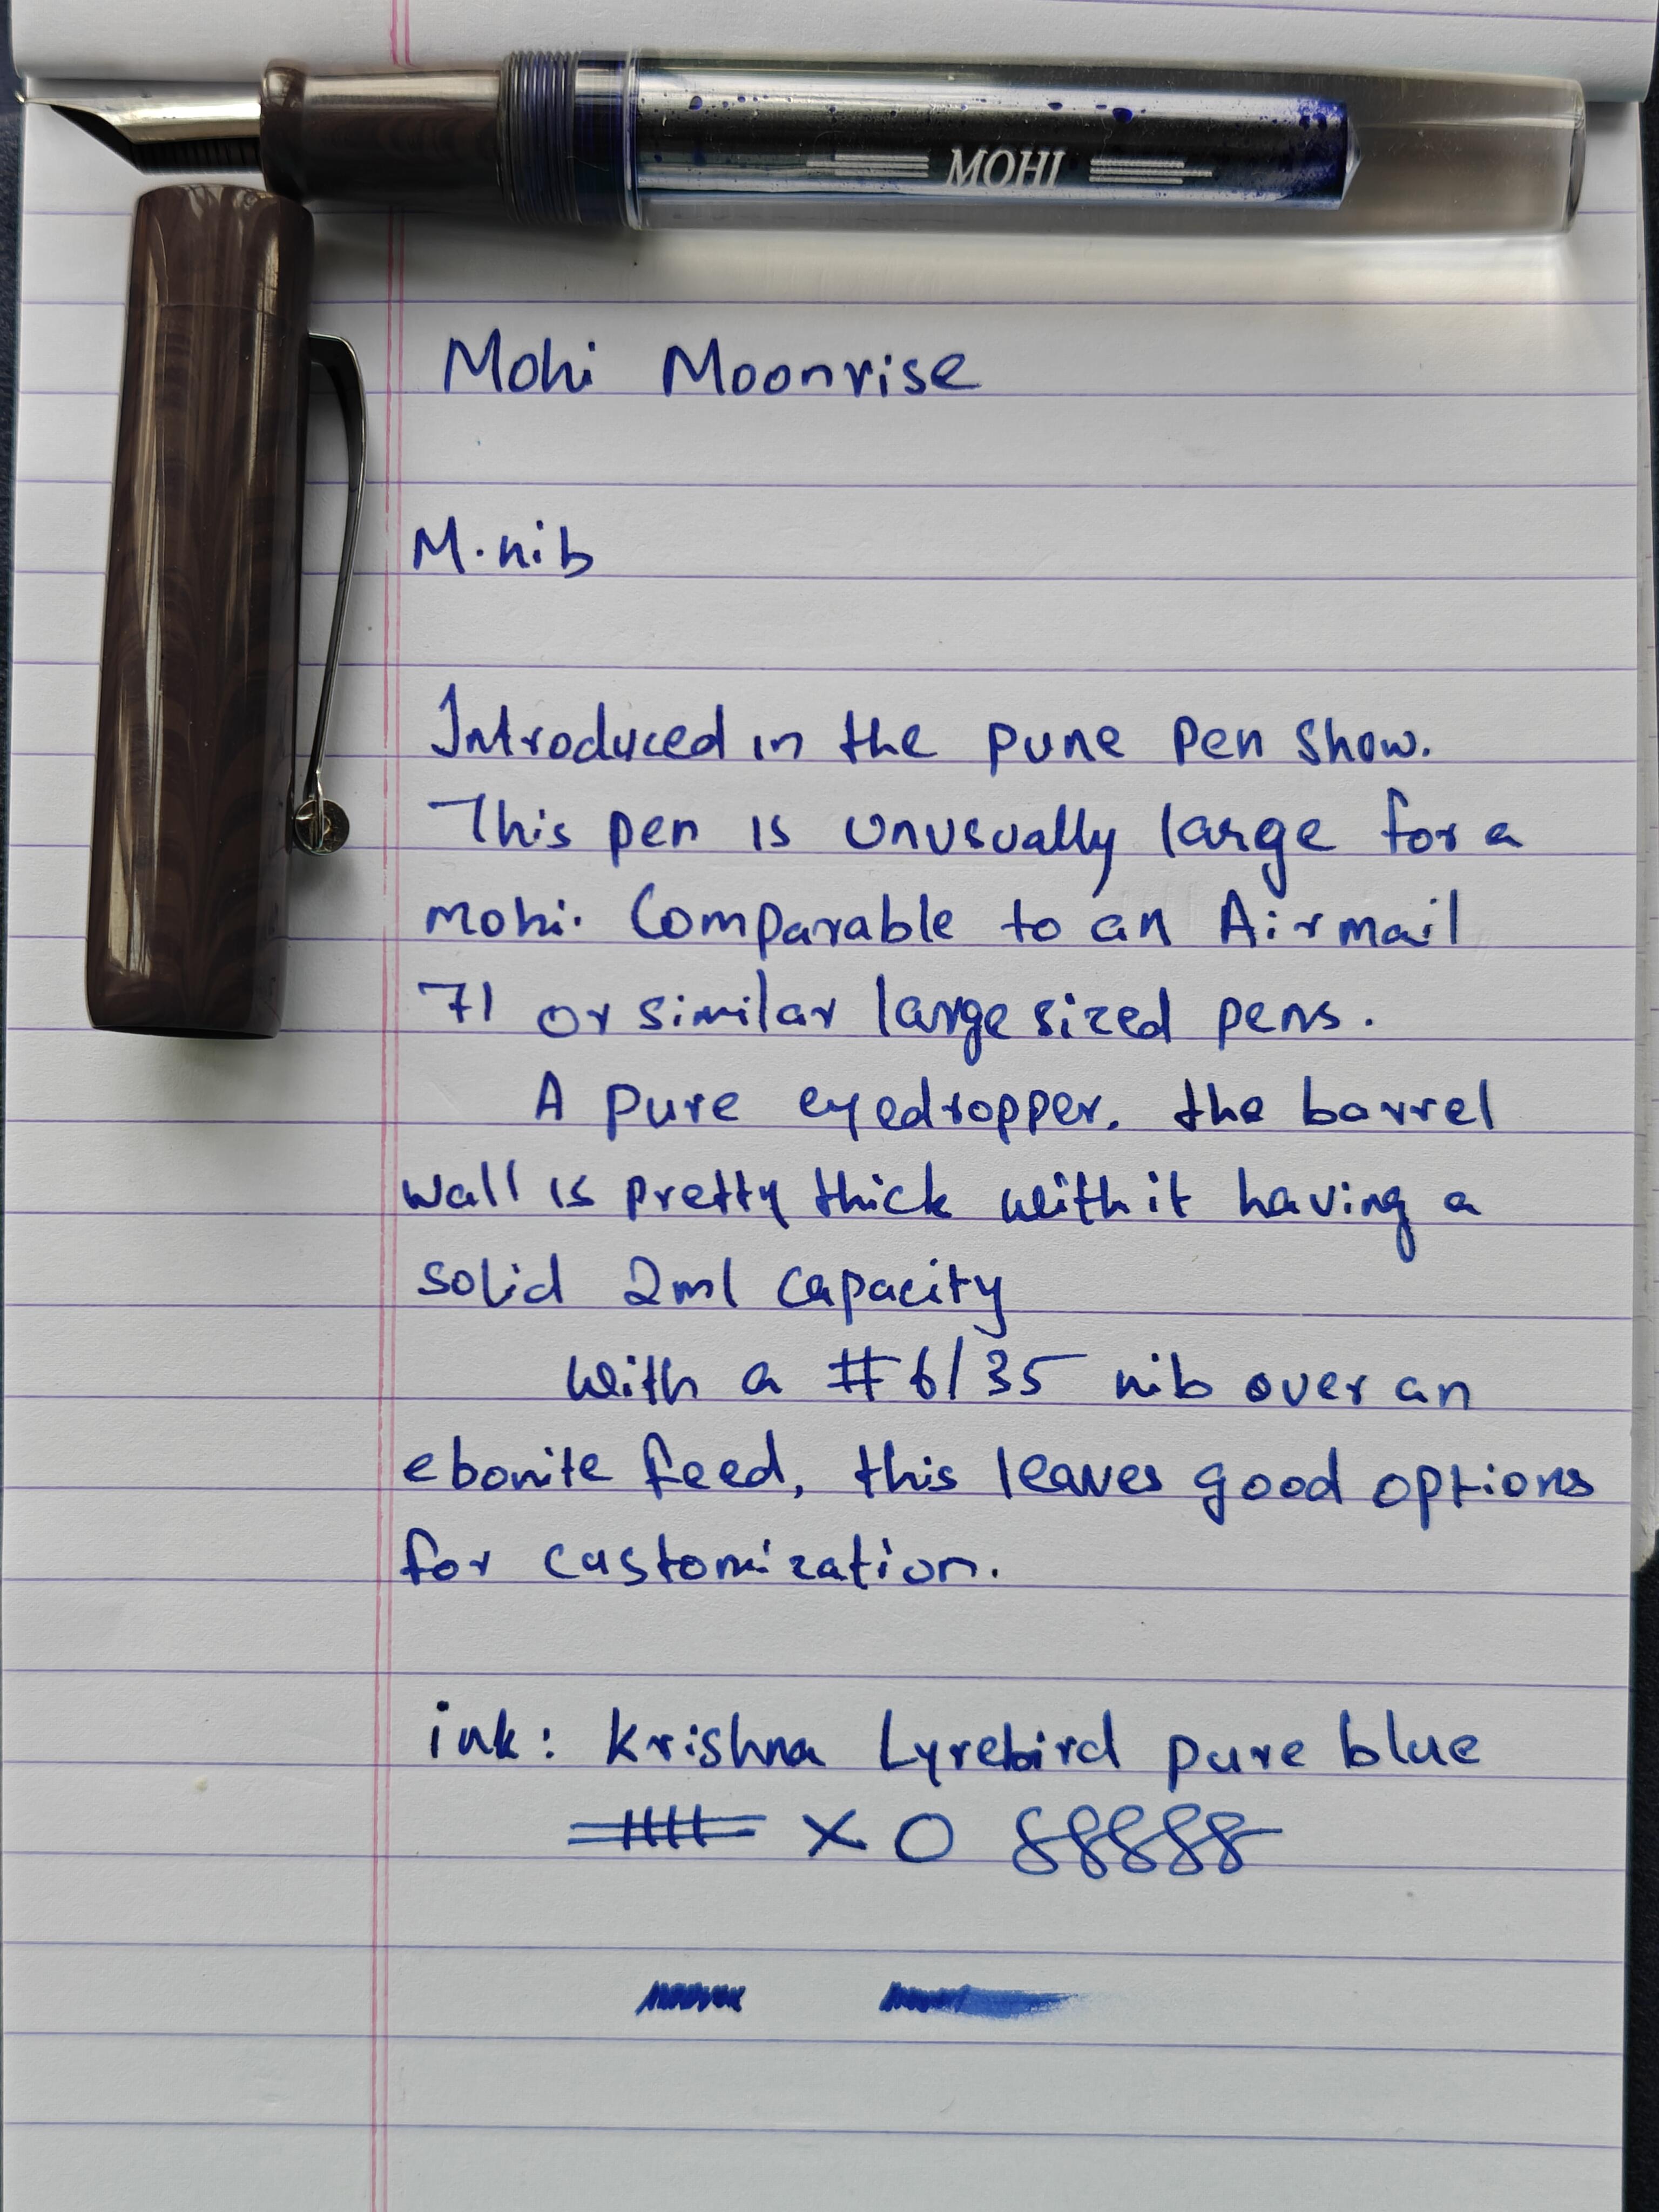 MOHI
Mohi Moonrise
M.nib
Introduced in the pune pen show.
This pen is unusually large for a
mohi. Comparable to an Airmail
71 or similar large sized pens.
A pure eyedropper. the barrel
wall is pretty thick with it having a
solid 2ml capacity
with a #6/35 nib over an
ebonite feed, this leaves good options
for customization.
ink: Krishna Lyrebird pure blue